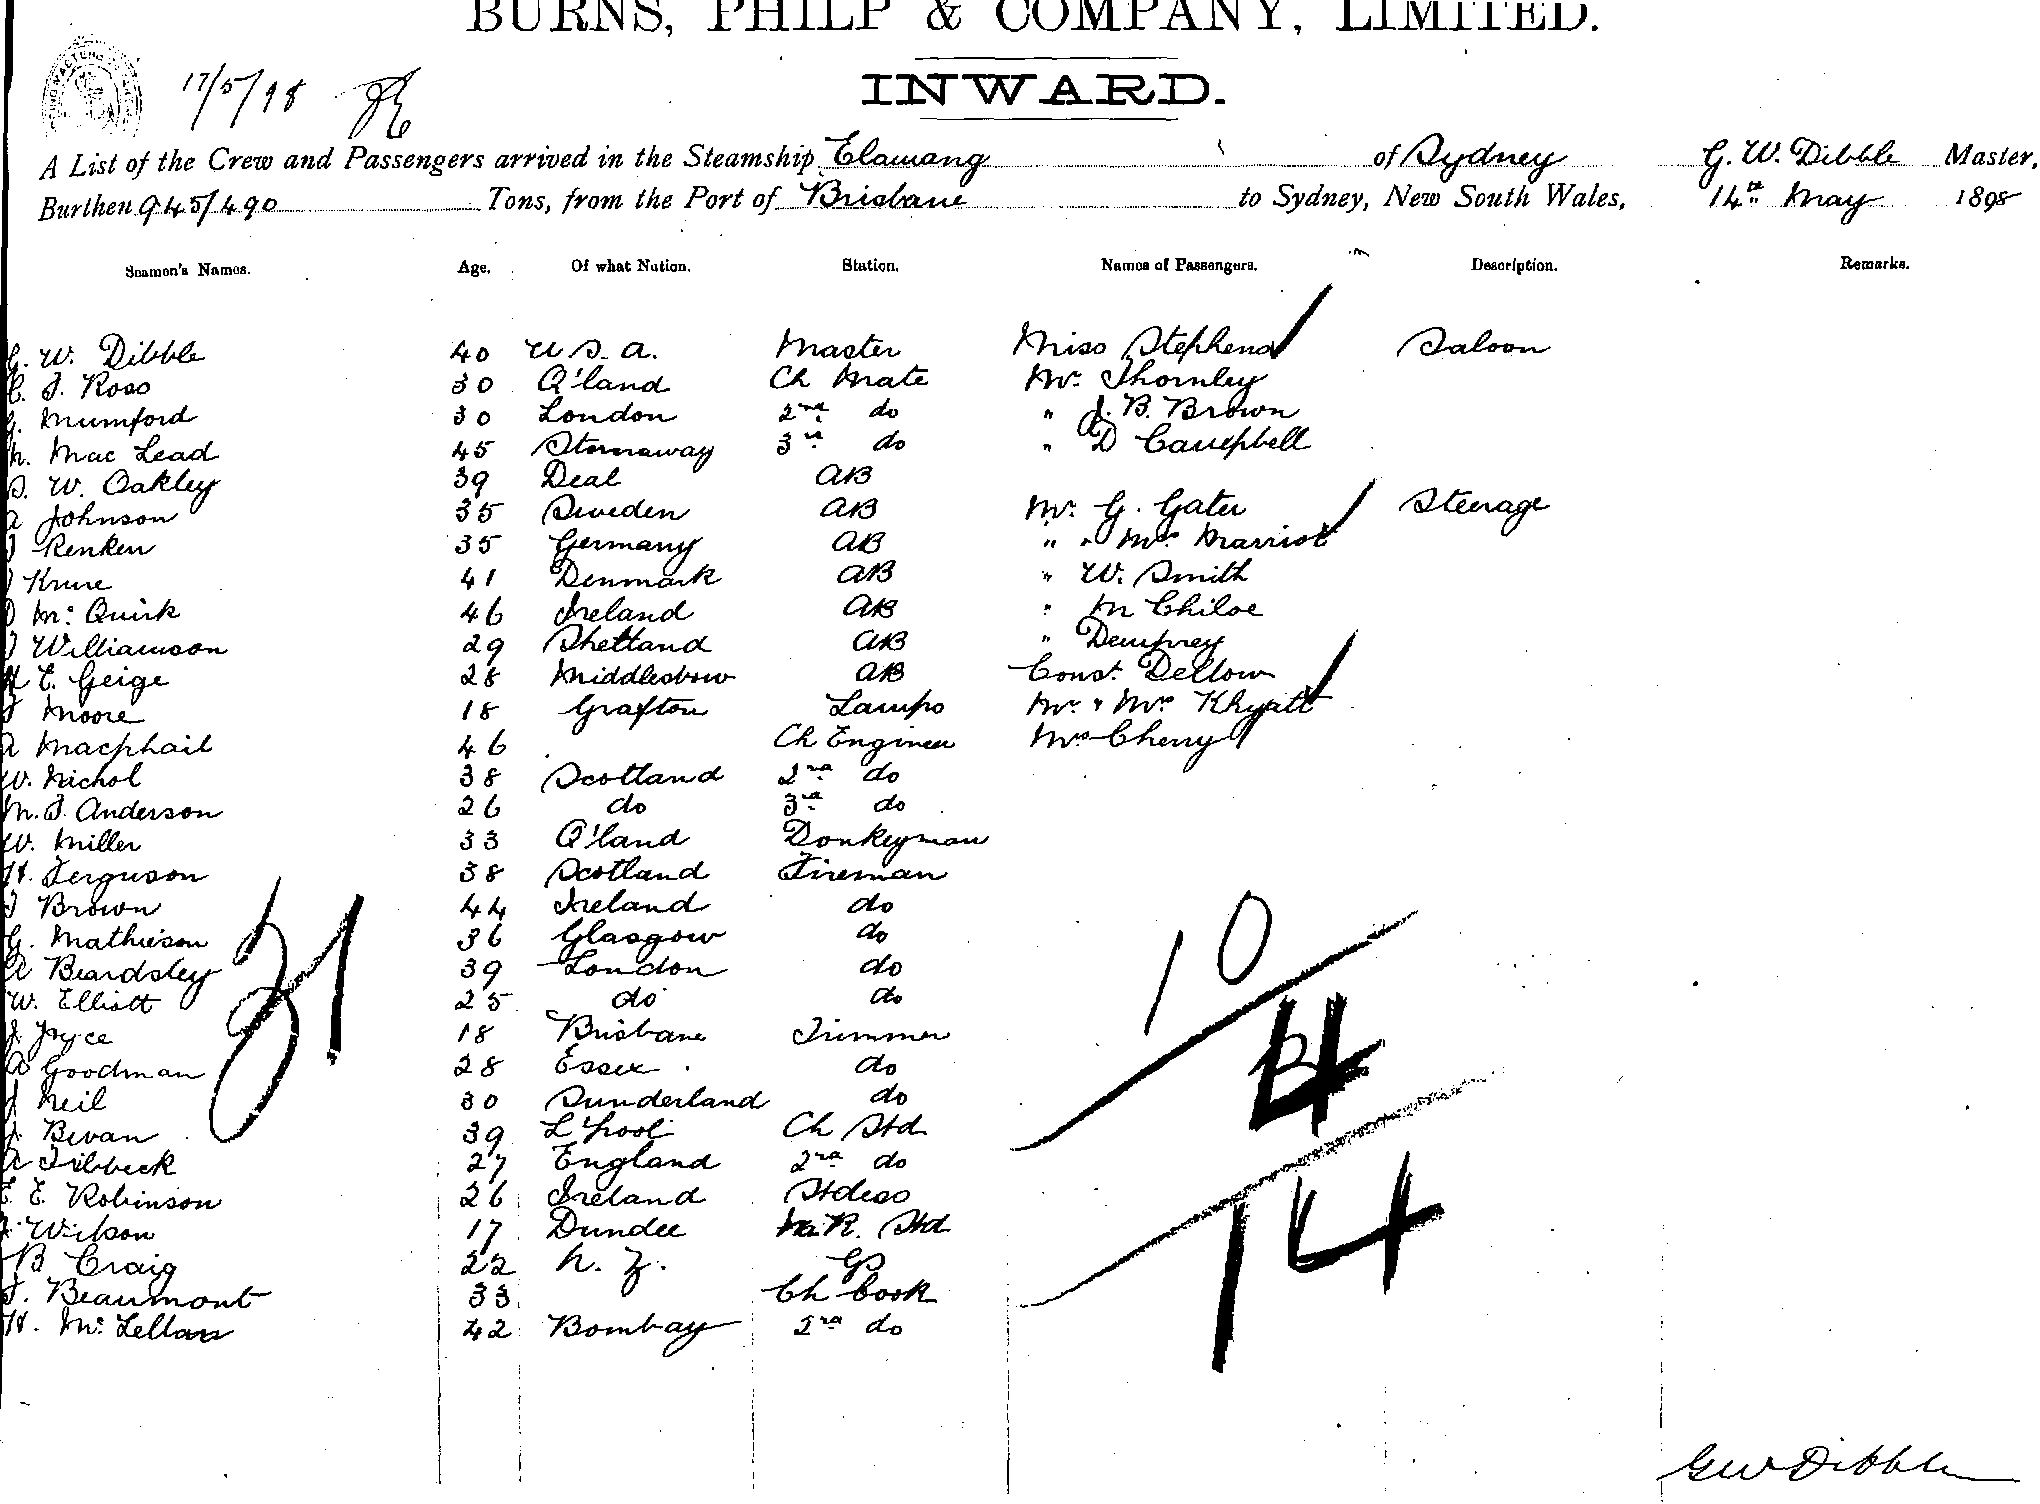 BURNS, PHILP & COMPANY, LIMITED.
INWARD.
17/5/98
A List of the Crew and Passengers arrived in the Steamship Elamang of Sydney G. W. Dibble Master,
Burthen 945/490 Tons, from the Port of Brisbane to Sydney, New South Wales, 14th May 1898
Seamen's Names. Age. Of what Nation. Station. Names of Passengers. Description. Remarks.
G. W. Dibble 40 U S. A. Master Miss Stephens Saloon
C. J. Ross 30 Q'land Ch Mate Mr. Thornley
G. Mumford 30 London 2nd do " J. B. Brown
Mac Lead 45 Stornaway 3rd do " D Campbell
S. W. Oakley 39 Deal AB
A Johnson 35 Sweden AB Mr. G. Gater Steerage
J Renken 35 Germany AB " " Mrs Marriot
Kruse 41 Denmark AB " W. Smith
Mc Quirk 46 Ireland AB " M Chiloe
J Williamson 29 Shetland AB " Dempfrey
H E. Geige 28 Middlesbow AB Const. Dellow
J Moore 18 Grafton Lamps Mr. " Mrs Khyatt
A Macphail 46 Ch Engineer Mrs Cherry
W. Nichol 38 Scotland 2nd do
M. J. Anderson 26 do 3rd do
W. Miller 33 Q'land Donkeyman
H. Ferguson 38 Scotland Fireman
J Brown 44 Ireland do
G. Mathieson 36 Glasgow do
A Beardsley 39 London do
W. Elliott 25 do do
J. Joyce 18 Brisbane Trimmer
A Goodman 28 Essex do
J Neil 30 Sunderland do
J. Bevan 39 L'pool Ch Std
A Tilbbeck 27 England 2nd do
E. Robinson 26 Ireland Stdess
Wilson 17 Dundee M. R. Std
B Craig 22 N. Z.
J. Beaumont 33 Ch Cook
H. Mc Lellan 42 Bombay 2nd do
31
10
4
14
G W Dibble